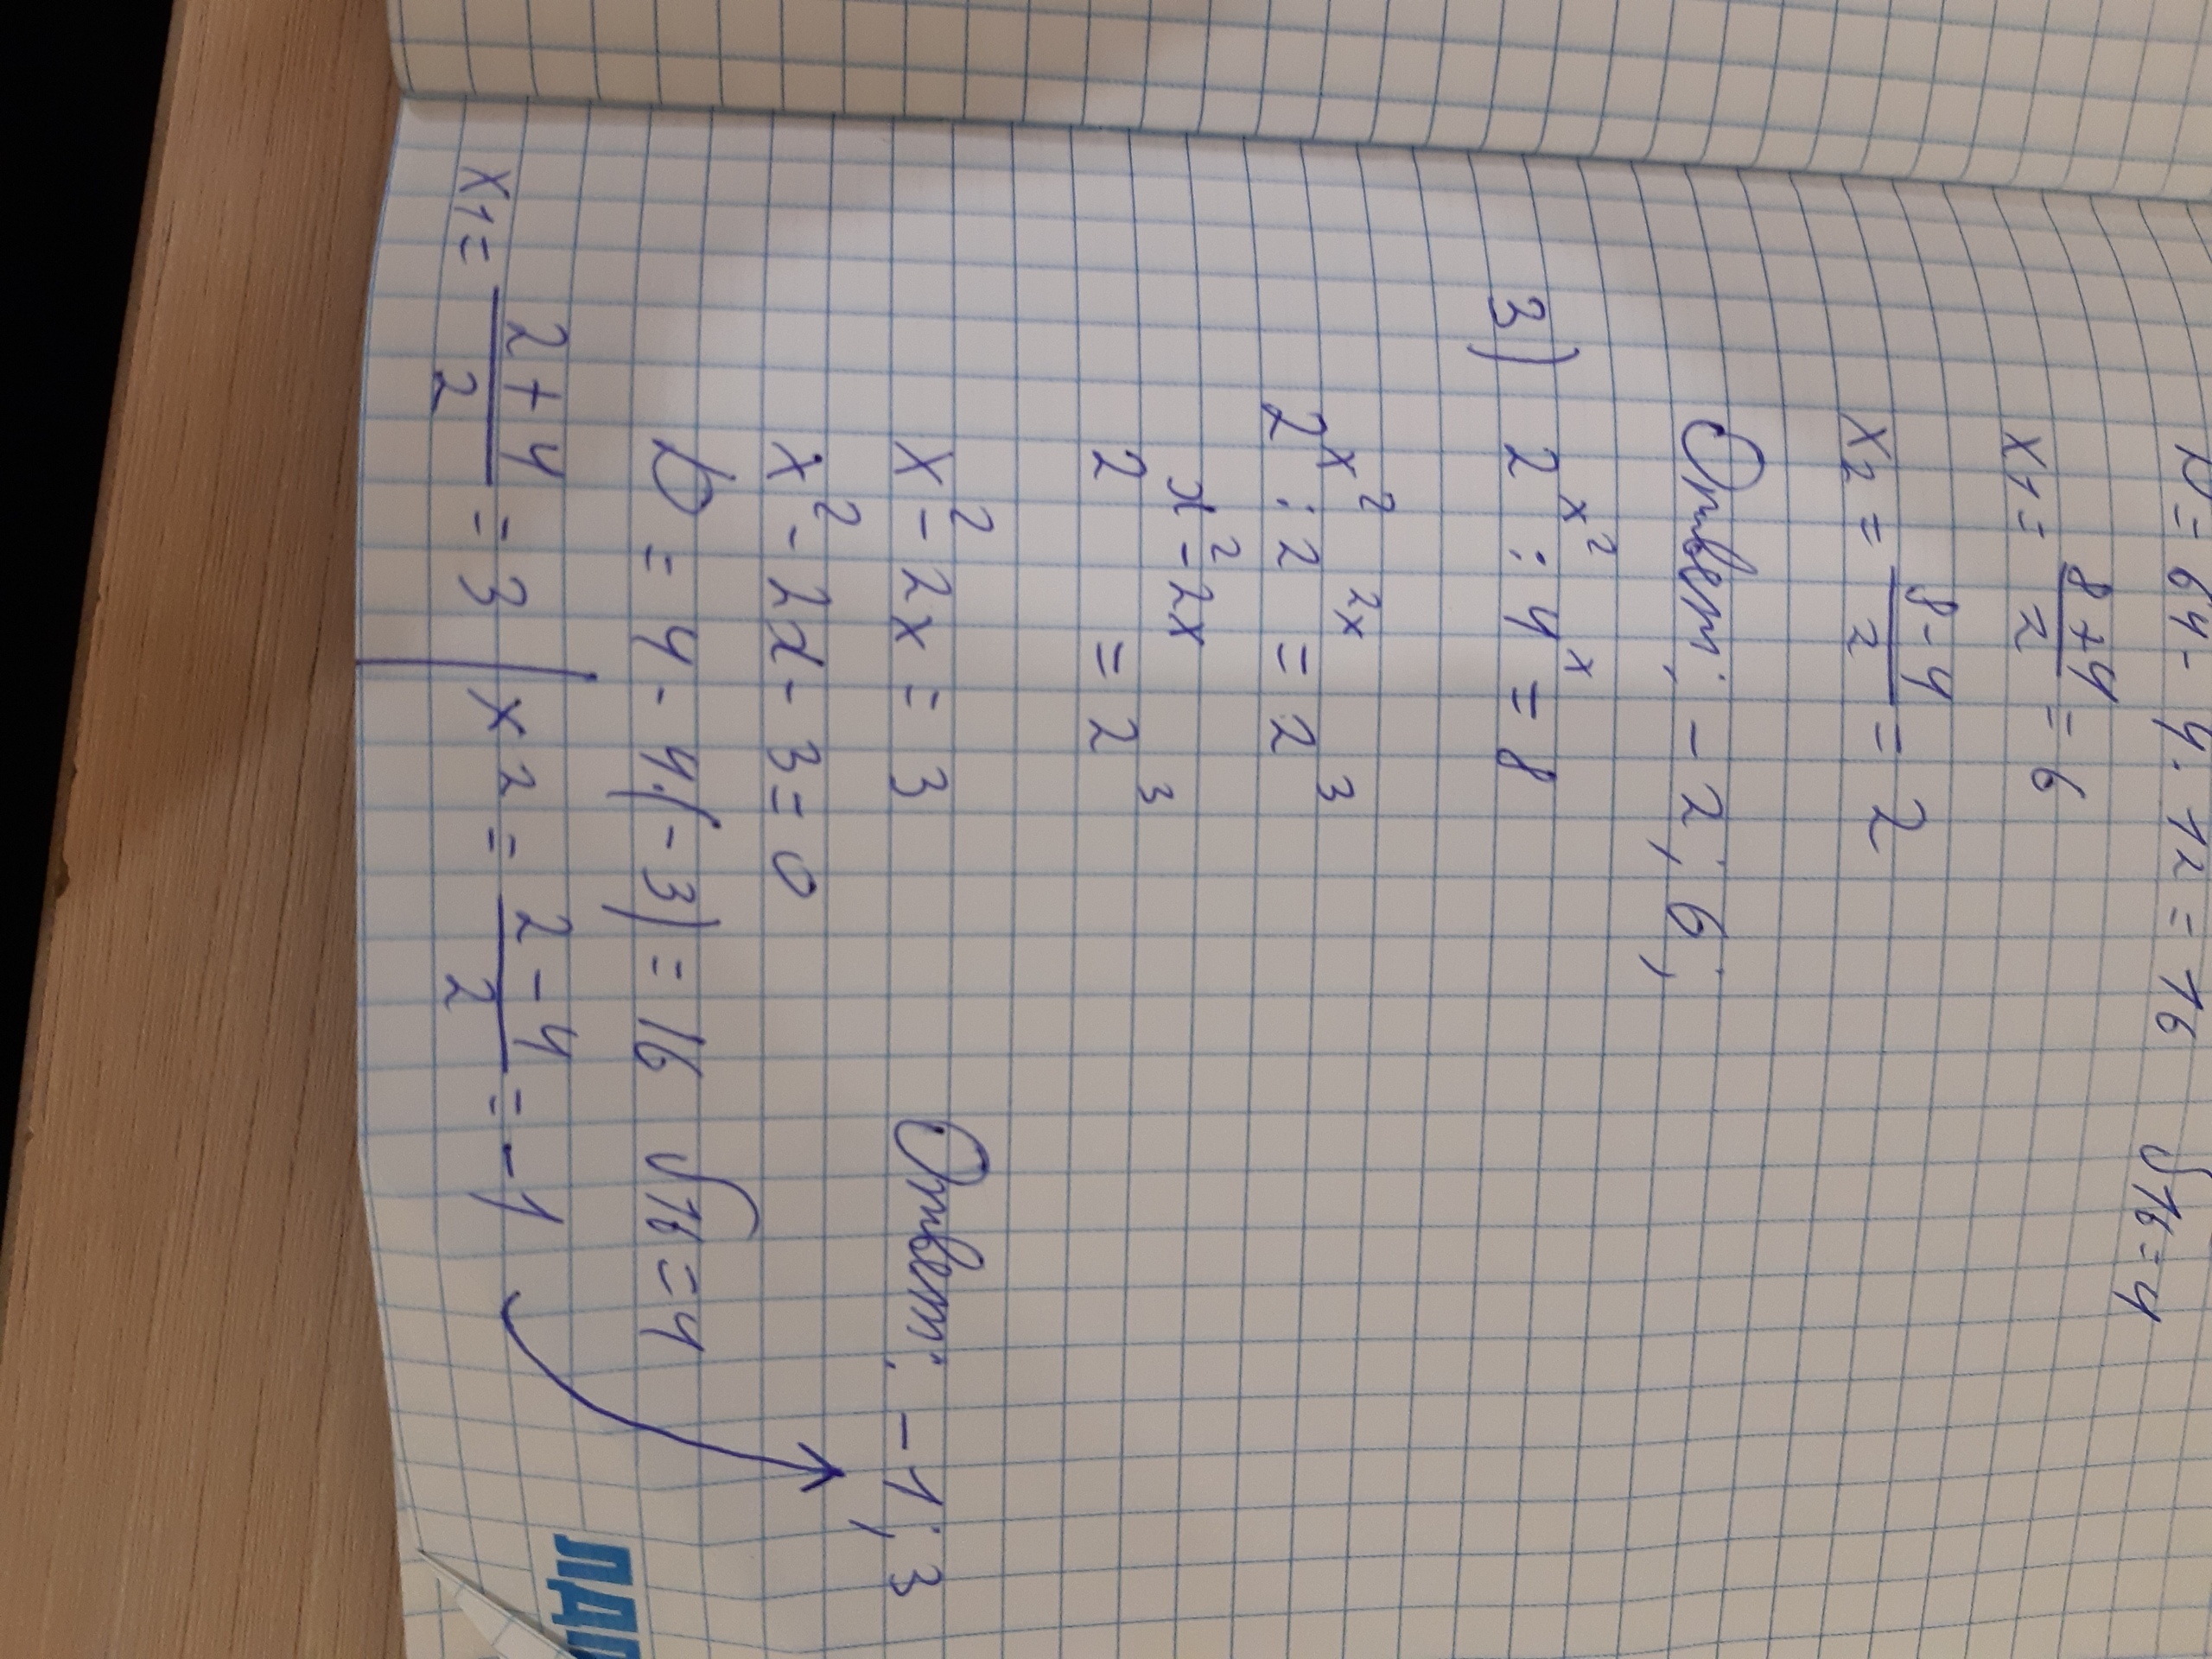 D = 64 - 4 · 12 = 16 √16 = 4
x₁ = (8+4)/2 = 6
x₂ = (8-4)/2 = 2
Ответ: - 2; 6;
3) 2^(x²) : 4^x = 8
2^(x²) : 2^(2x) = 2³
2^(x²-2x) = 2³
x² - 2x = 3
Ответ: -1; 3
x² - 2x - 3 = 0
D = 4 - 4·(-3) = 16 √16 = 4
x₁ = (2+4)/2 = 3 | x₂ = (2-4)/2 = -1